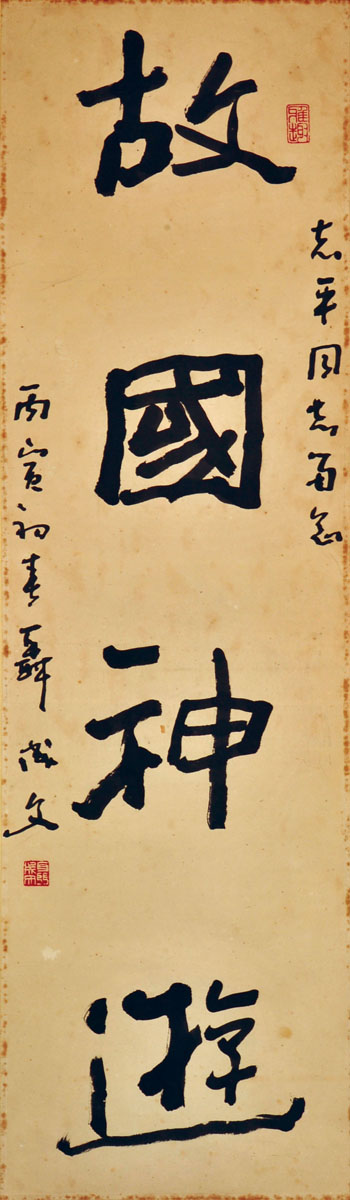 志平同志留念
故
國
神
遊
丙寅初春聶成文